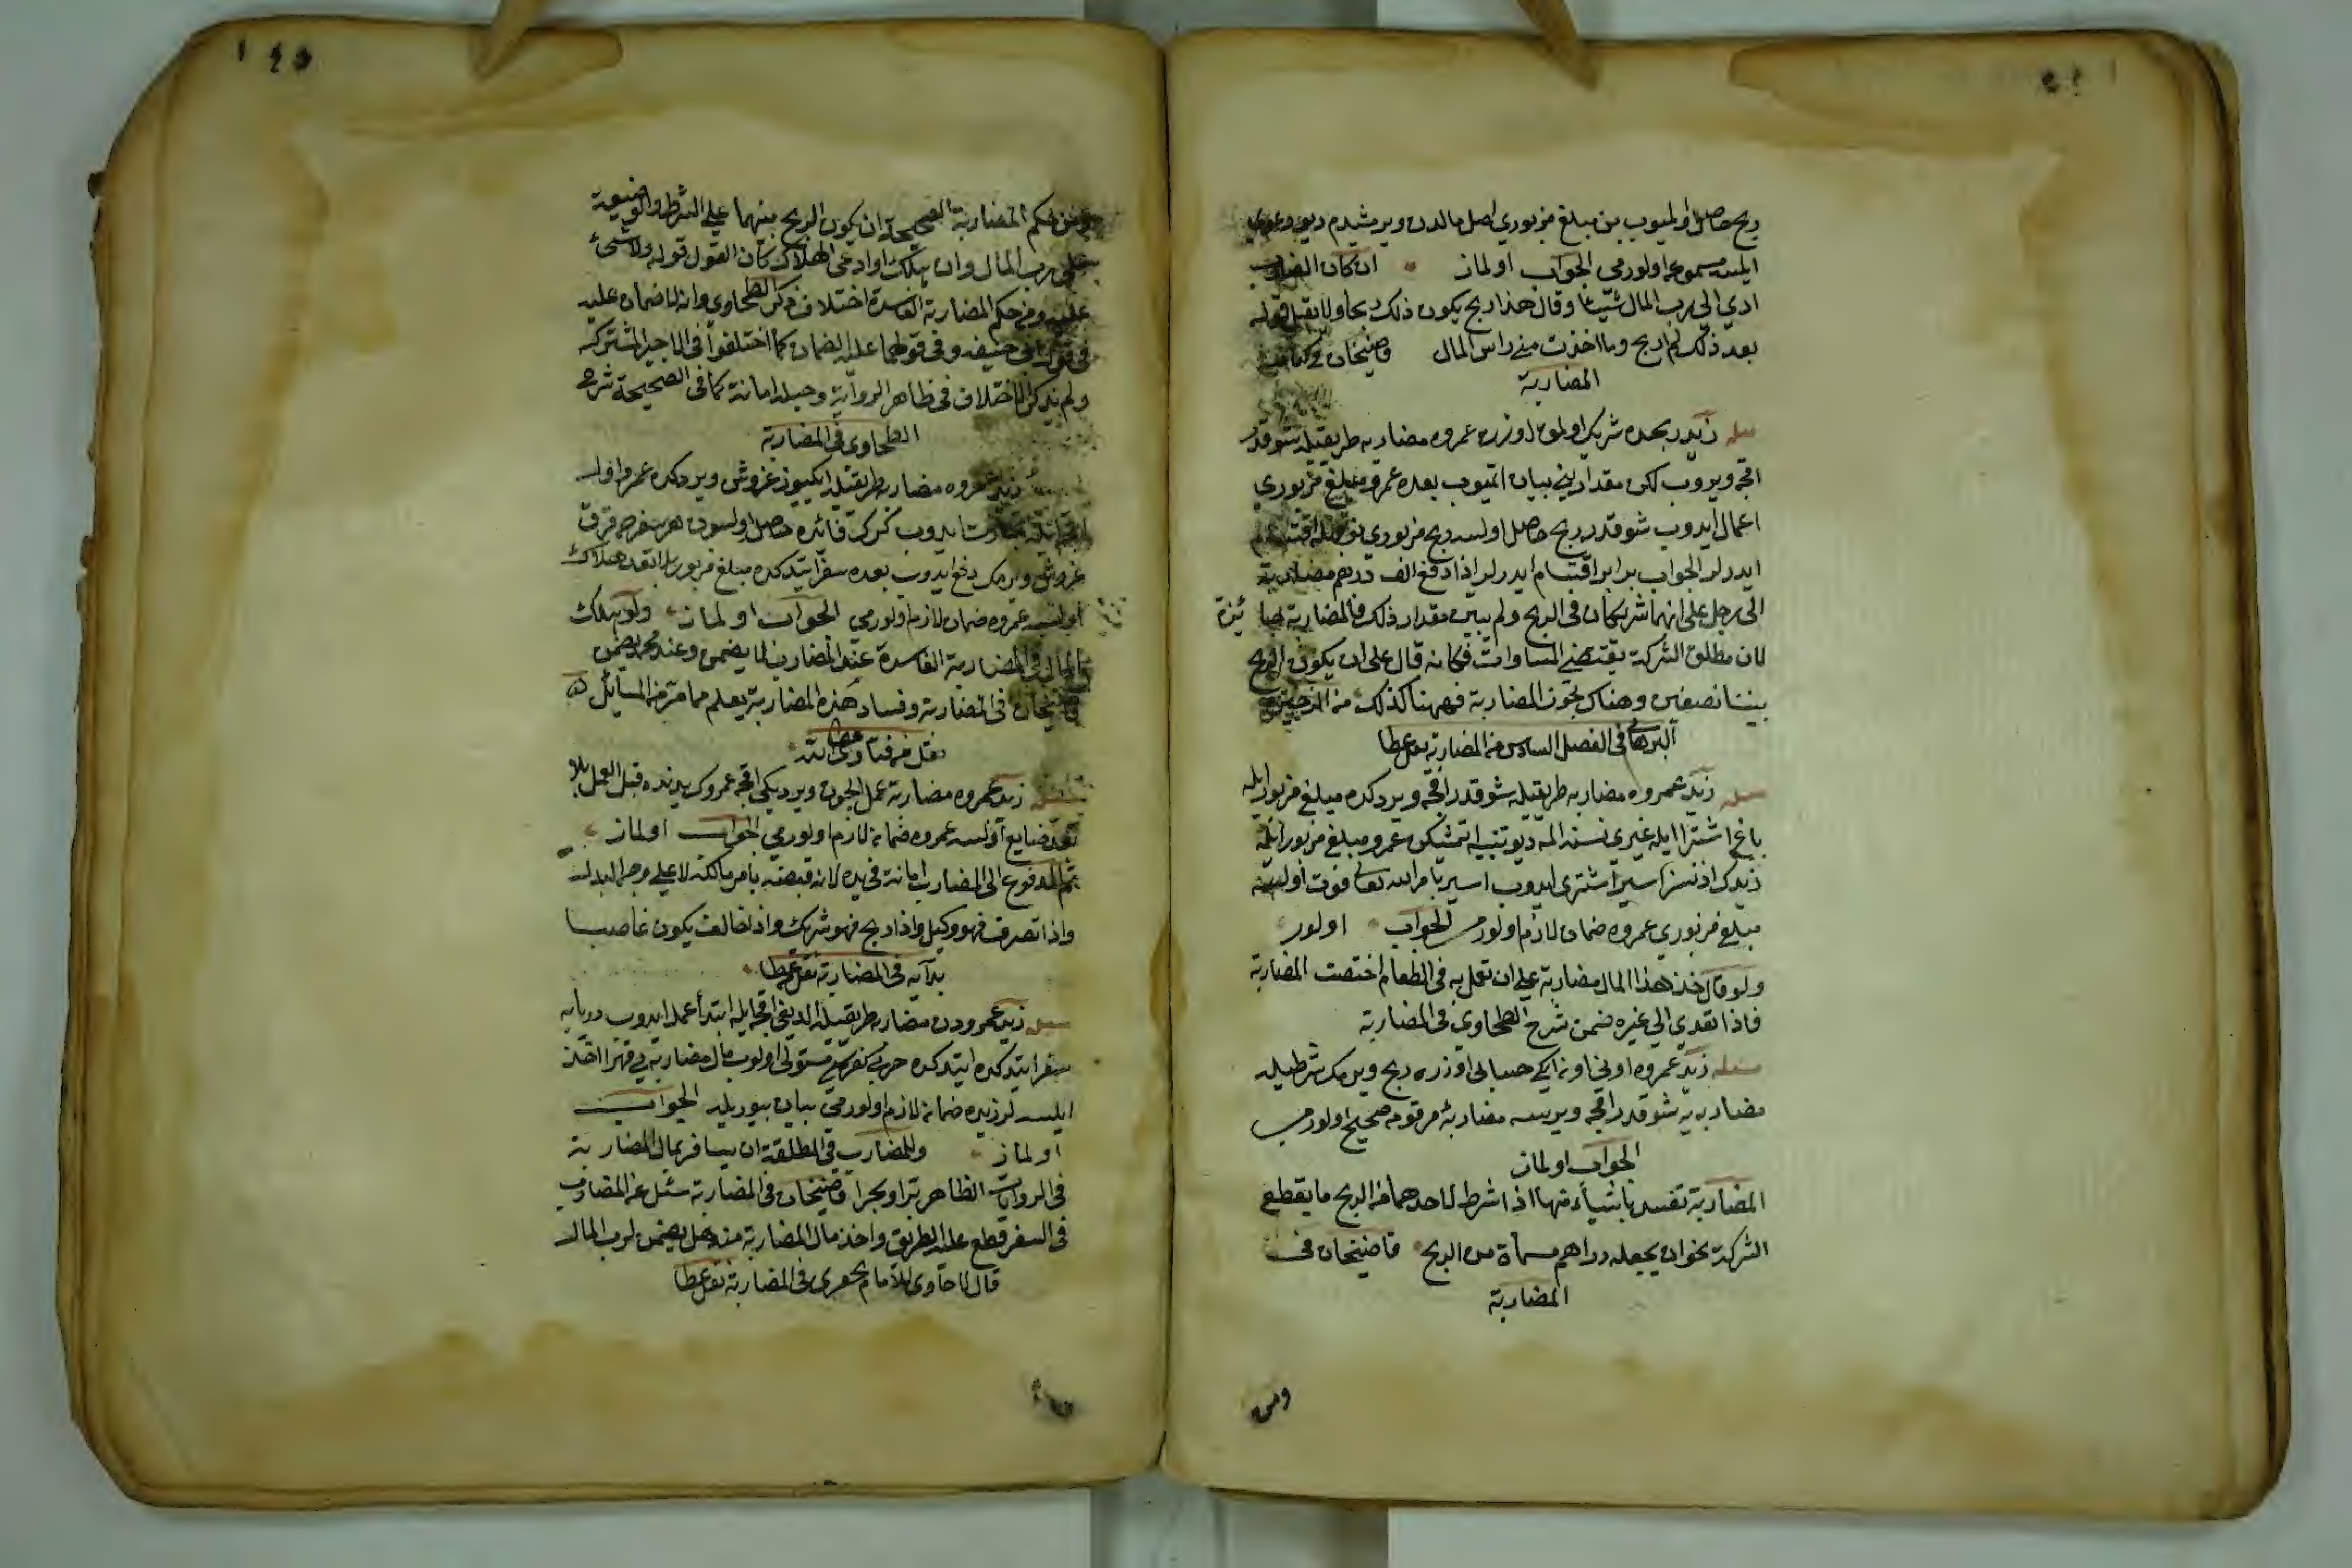 ربح حاصل اولميوب بن مبلغ مزبوري اصل مالدن ويرمشيدم ديو دعوي
ايلسه مسموعه اولورمي الجواب اولماز ان كان المضارب
ادي الي رب المال شيئا وقال هذا ربح يكون ذلك ربحا ولا يقبل قوله
بعد ذلك لم اربح وما اخذت مني راس المال قاضيخان في كتاب
المضاربة
مسله زيد ربحده شريك اولمق اوزره عمروه مضاربه طريقيله شو قدر
اقچه ويروب لكن مقداريني بيان اتميوب بعده عمرو مبلغ مزبوري
اعمال ايدوب شو قدر ربح حاصل اولسه ربح مزبوري نوجهله اقتسام
ايدرلر الجواب برابر اقتسام ايدرلر اذا دفع الف درهم مضاربة
الي رجل علي انهما شريكان في الربح ولم يبين مقدار ذلك فالمضاربة جايزة
لان مطلق الشركة يقتضي المساوات فكانه قال علي ان يكون الربح
بيننا نصفين وهناك يجوز المضاربة فههنا كذلك من الذخيرة
البرهاني في الفصل السادس من المضاربة نقل عطا
مسله زيد عمروه مضاربه طريقيله شو قدر اقچه ويردكده مبلغ مزبور ايله
باغ اشترا ايله غيري نسنه المه ديو تنبيه اتمشيكن عمرو مبلغ مزبور ايله
زيدك اذنسز اسير اشتري ايدوب اسير بامر الله تعالي فوت اولسه
مبلغ مزبوري عمروه ضمان لازم اولورمي الجواب اولور
ولو قال خذ هذا المال مضاربة علي ان تعمل به في الطعام اختصت المضاربة
فاذا تعدي الي غيره ضمن شرح الطحاوي في المضاربة
مسئله زيد عمروه اوني اون ايكي حسابي اوزره ربح ويرمك شرطيله
مضاربه يه شو قدر اقچه ويرسه مضاربۀ مرقومه صحيح اولورمي
الجواب اولماز
المضاربة تفسد باشياء منها اذا شرط لاحدهما من الربح ما يقطع
الشركة نحو ان يجعله دراهم مسماة من الربح قاضيخان في
المضاربة
ومن
١٤٥
ومن حكم المضاربة الصحيحة ان يكون الربح بينهما علي الشرط والوضيعة
علي رب المال وان هلك او ادعي الهلاك كان القول قوله ولا شئ
عليه ومن حكم المضاربة الفاسدة اختلاف ذكر الطحاوي وانه لا ضمان عليه
في قول ابي حنيفه وفي قولهما عليه الضمان كما اختلفوا في الاجير المشترك
ولم يذكر الاختلاف في ظاهر الرواية وجعله امانة كما في الصحيحة شرح
الطحاوي في المضاربة
زيد عمروه مضاربه طريقيله ايكيوز غروش ويردكده عمرو اول
اقچه ايله تجارت ايدوب كرك فائده حاصل اولسون هر سفرده قرق
غروش ويرمك دفع ايدوب بعده سفر ايتدكده مبلغ مزبور بلا تعد هلاك
اولسه عمروه ضمان لازم اولورمي الجواب اولماز ولو هلك
المال في المضاربة الفاسدة عند المضارب لا يضمن وعند محمد يضمن
قاضيخان في المضاربة وفساد هذه المضاربة يعلم مما مر من المسائل
نقل من فتاوي
زيد عمروه مضاربة عمل ايچون ويرديكي اقچه عمروك يدنده قبل العمل بلا
تعد ضايع اولسه عمروه ضمانه لازم اولورمي الجواب اولماز
ثم المدفوع الي المضارب امانة في يده لانه قبضه بامر مالكه لا علي وجه البدل
واذا تصرف فهو وكيل واذا ربح فهو شريك واذا خالف يكون غاصبا
بدآيه في المضاربة نقل عطا
مسله زيد عمرودن مضاربه طريقيله الديغي اقچه ايله ابتدأ عمل ايدوب دريايه
سفر ايتدكده حربي كفره مستولي اولوب مال مضاربه يي قهرا اخذ
ايلسه لر زيده ضمانه لازم اولورمي بيان بيوريله الجواب
اولماز وللمضارب في المطلقة ان يسافر بمال المضاربة
في الروايات الظاهر برا وبحرا قاضيخان في المضاربة سئل عن المضارب
في السفر قطع عليه الطريق واخذ مال المضاربة منه هل يضمن لرب المال
قال لا حاوي للامام الحصري في المضاربة نقل عطا